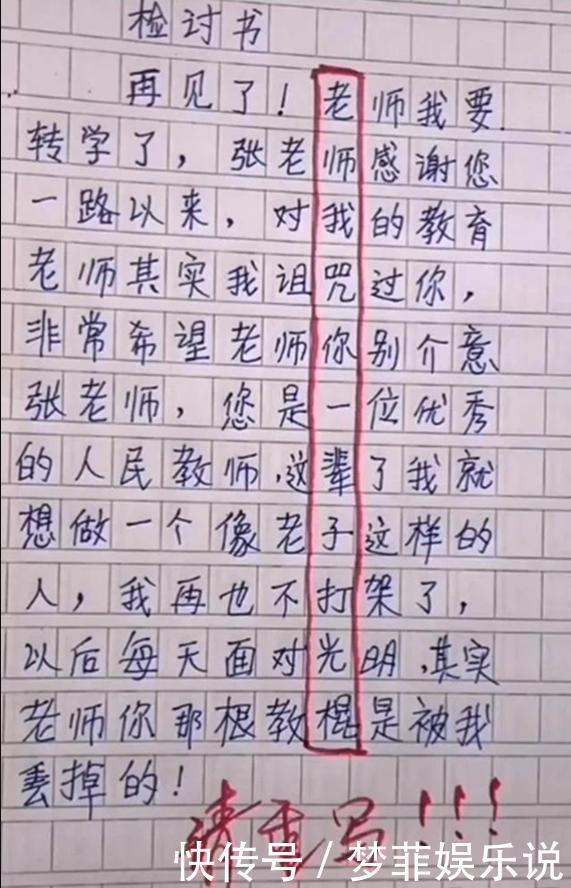 检讨书
再见了！老师我要
转学了，张老师感谢您
一路以来，对我的教育
老师其实我诅咒过你，
非常希望老师你别介意
张老师，您是一位优秀
的人民教师，这辈了我就
想做一个像老子这样的
人，我再也不打架了，
以后每天面对光明，其实
老师你那根教棍是被我
丢掉的！
请重写！！！
快传号／梦菲娱乐说